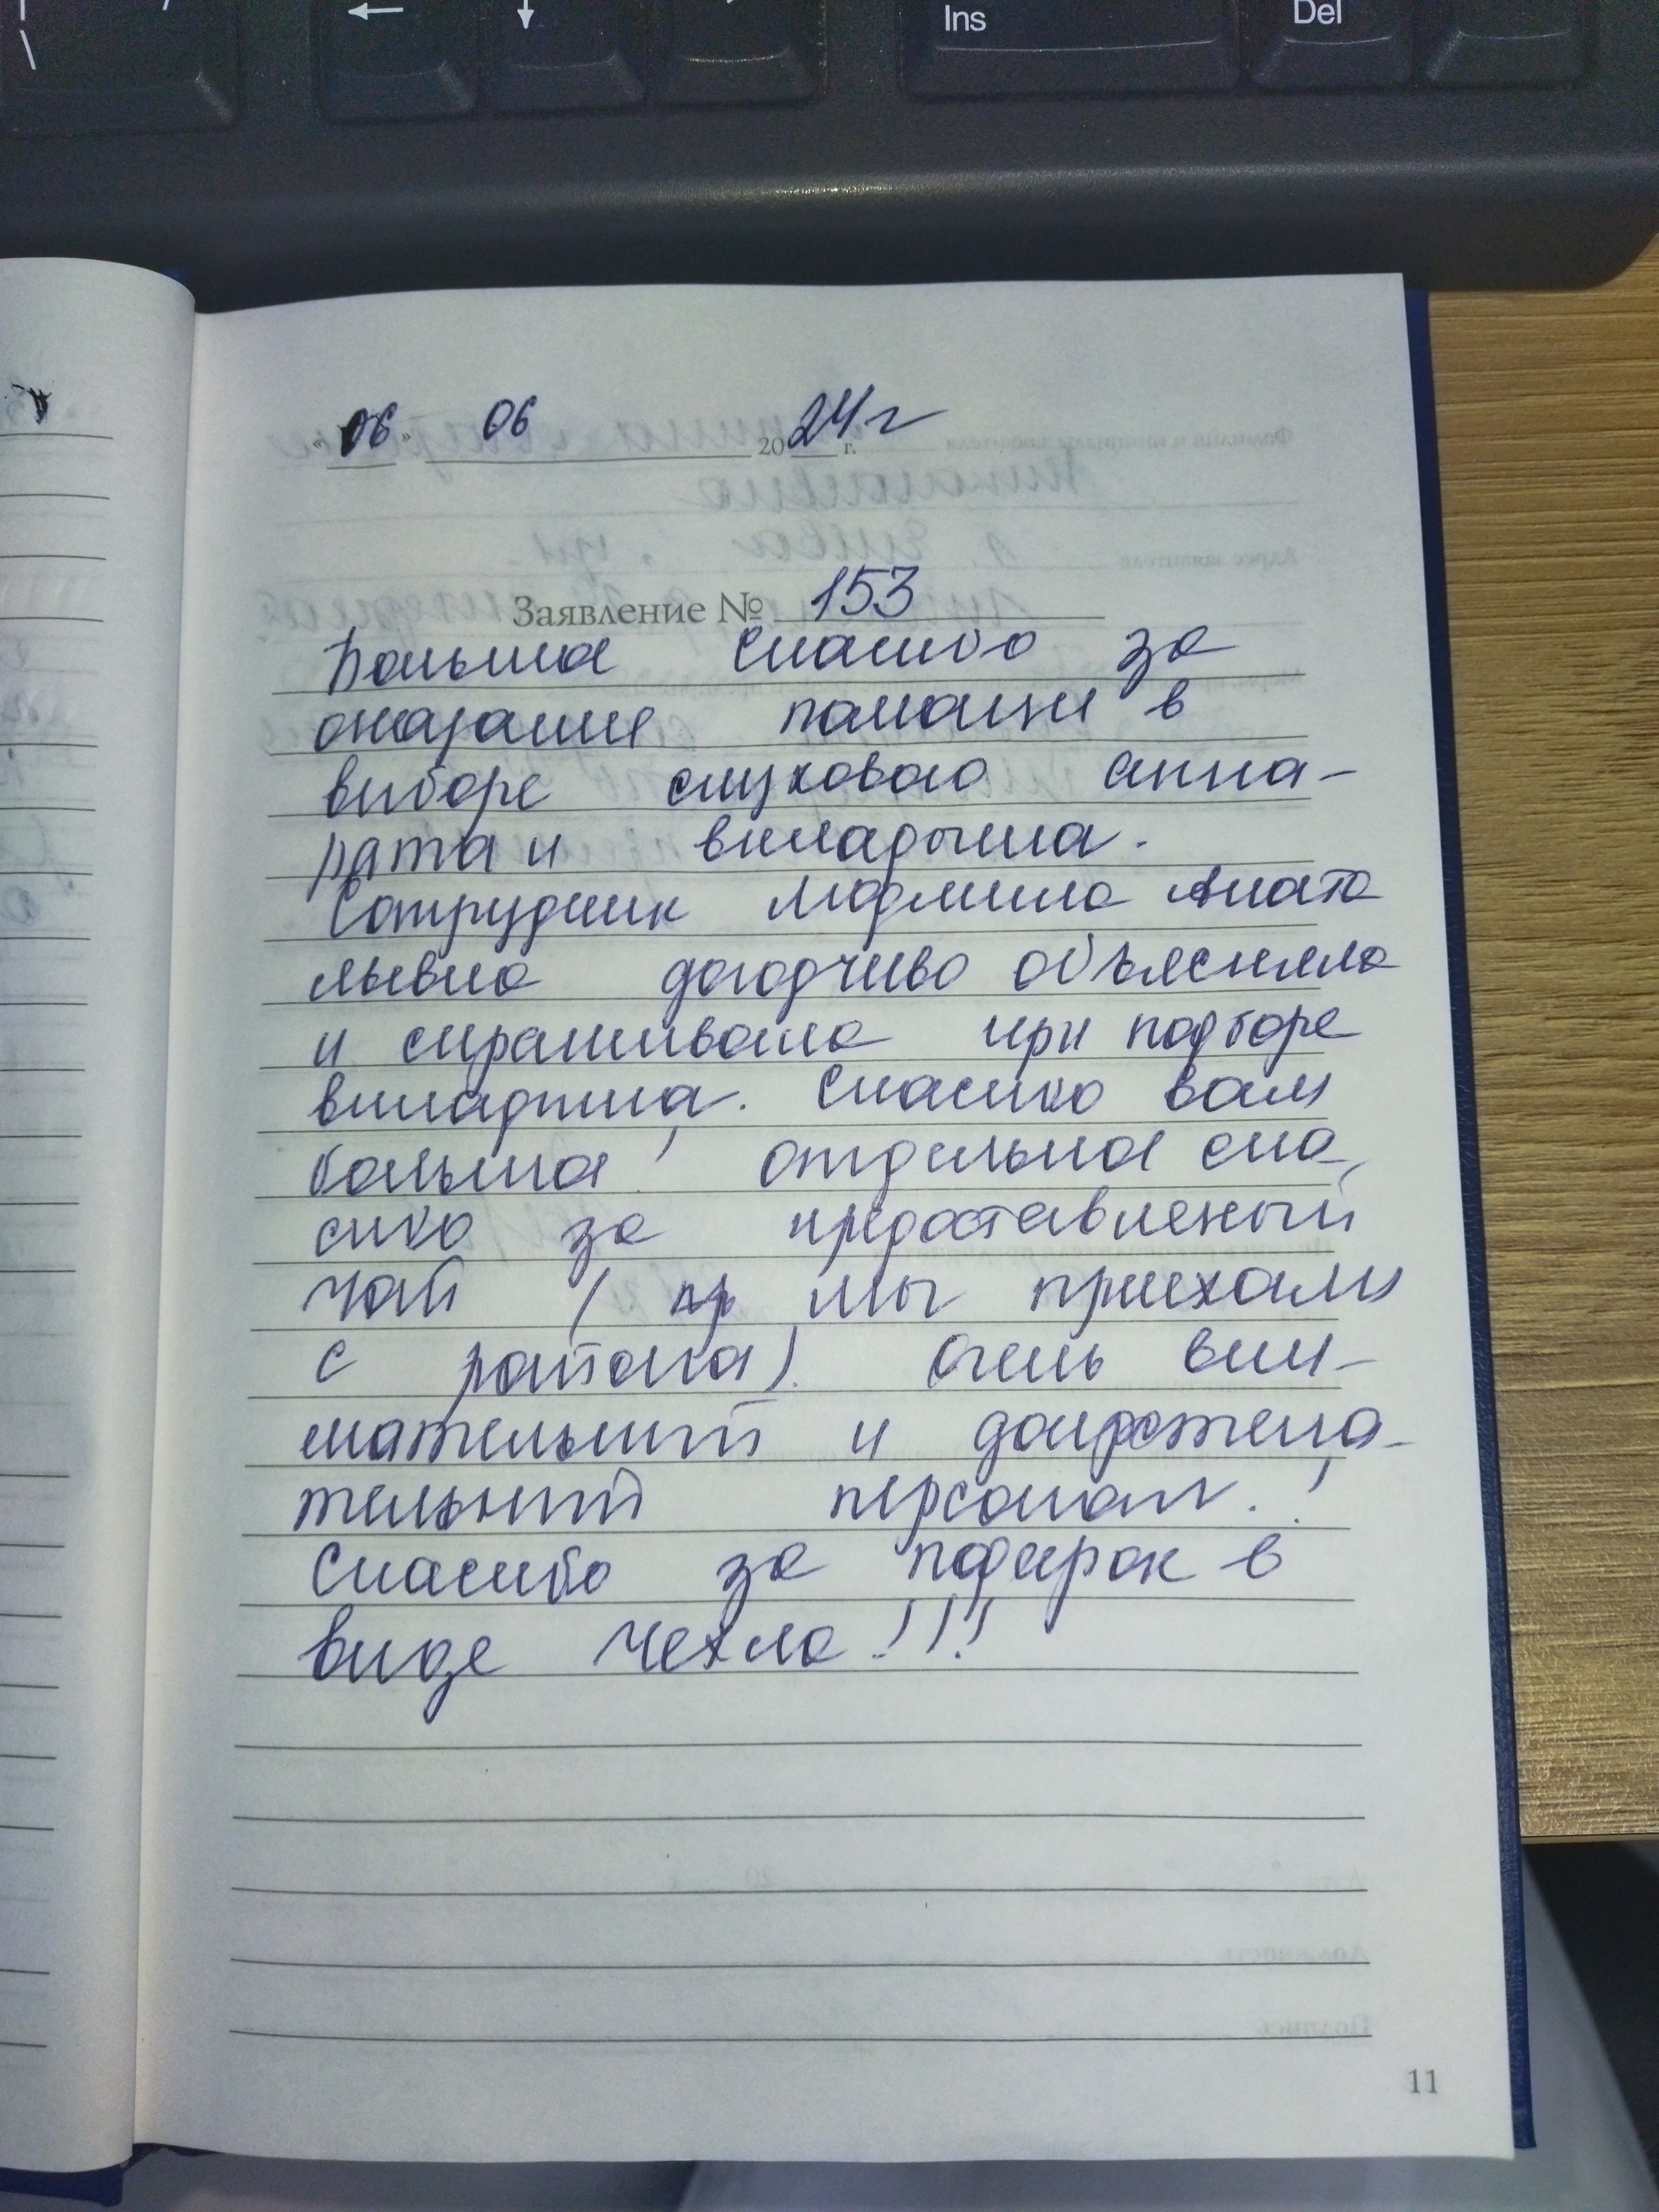 Ins Del
"06" 06 2024 г г.
Заявление № 153
Большое спасибо за
оказание помощи в
выборе слухового аппа-
рата и вкладыша.
Сотрудник Людмила Анато
льевна доходчиво объясняла
и спрашивала при подборе
вкладыша. Спасибо вам
большое! Отдельное спа
сибо за предоставленый
чай ( мы приехали
с района). Очень вни-
мательный и доброжела-
тельный персонал.!
Спасибо за подарок в
виде чехла!!!
11